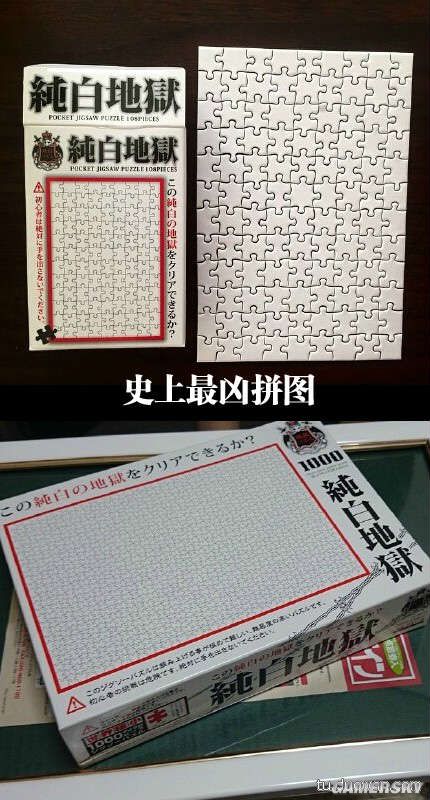 純白地獄
POCKET JIGSAW PUZZLE 108PIECES
純白地獄
POCKET JIGSAW PUZZLE 108PIECES
この純白の地獄をクリアできるか？
初心者は絶対に手を出さないでください。
史上最凶拼图
この純白の地獄をクリアできるか？
1000
純白地獄
このジグソーパズルは組み上げる事が極めて難しい、難易度の高いパズルです。
初心者の挑戦は危険です。絶対に手を出さないでください。
この純白の地獄をクリアできるか？
純白地獄
1000
GAMERSKY